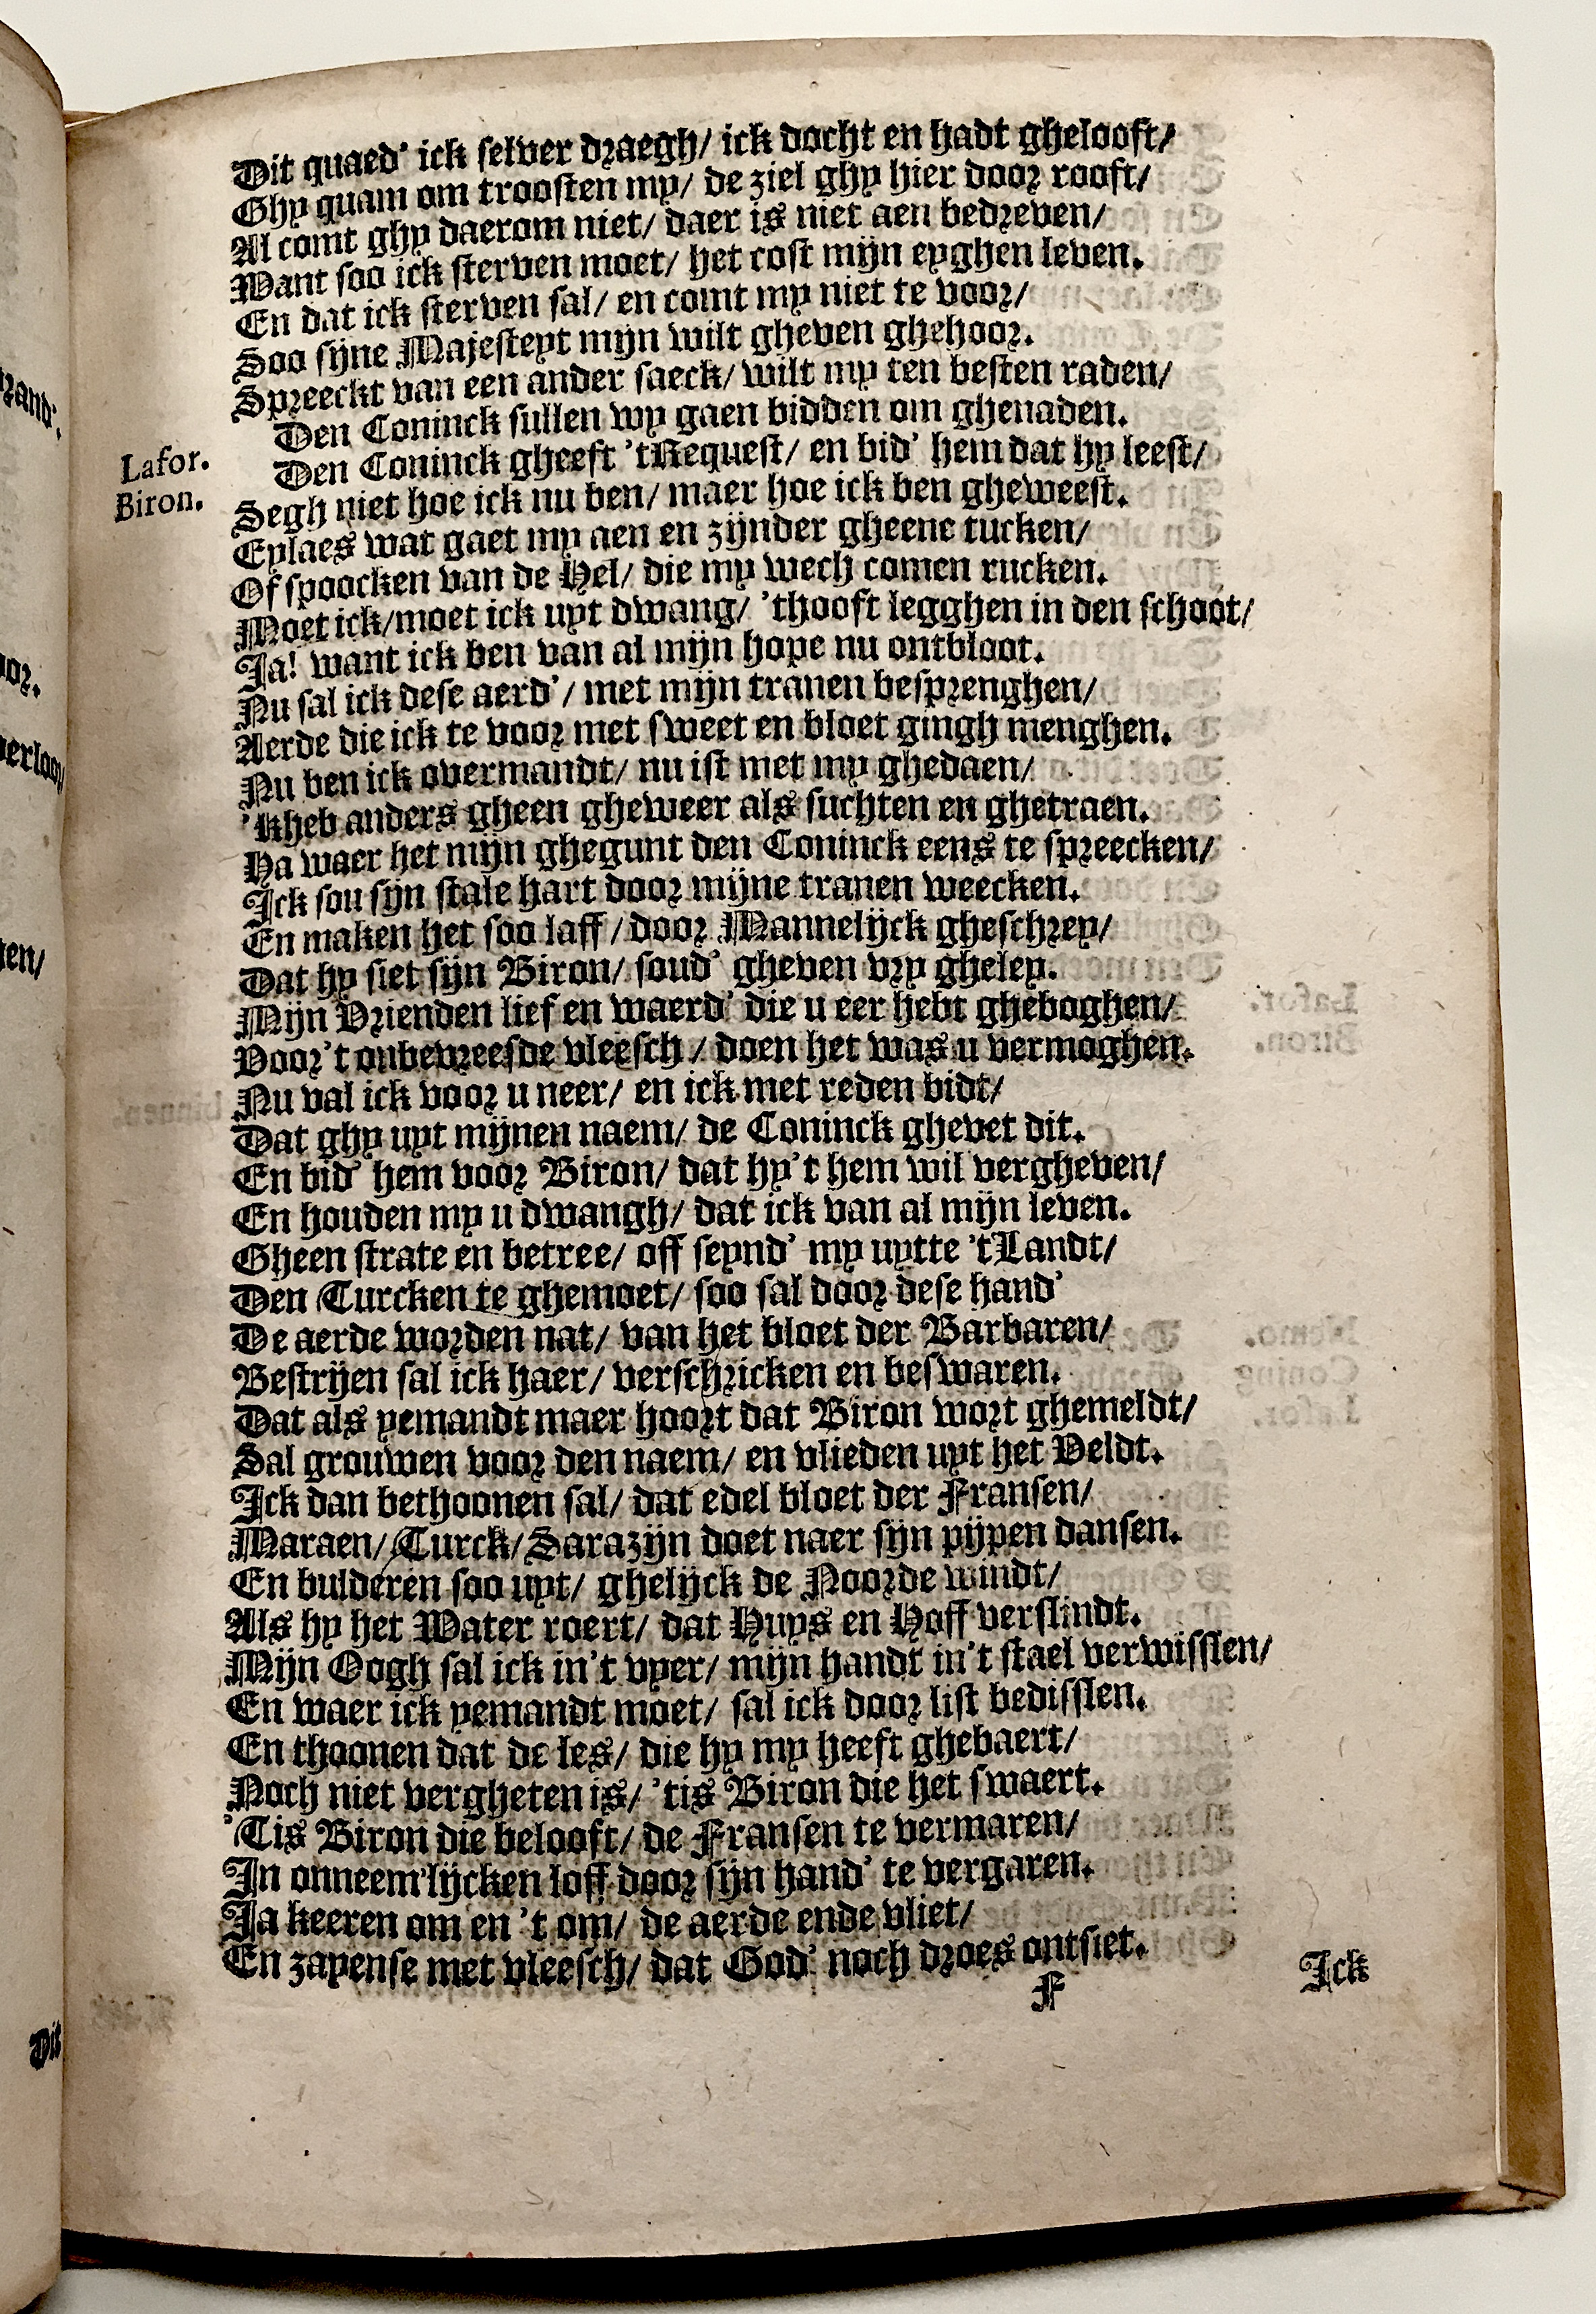 Dit quaed' ick selver draegh/ ick docht en hadt gheloost/
Ghy quam om troosten my/ de ziel ghy hier door rooft/
Al comt ghy daerom niet/ daer is niet aen bedreven/
Want soo ick sterven moet/ het cost mijn eyghen leven.
En dat ick sterven sal/ en comt my niet te voor/
Soo sijne Majesteyt mijn wilt gheven ghehoor.
Spreeckt van een ander saeck/ wilt my ten besten raden/
Lafor. Den Coninck sullen wy gaen bidden om ghenaden.
Biron. Den Coninck gheeft 't Request/ en bid' hem dat hy leest/
Segh niet hoe ick nu ben/ maer hoe ick ben gheweest.
Eylaes wat gaet my aen en zijnder gheene tucken/
Of spoocken van de Hel/ die my wech comen rucken.
Moet ick/ moet ick uyt dwang/ 'thooft legghen in den schoot/
Ja! want ick ben van al mijn hope nu ontbloot.
Nu sal ick dese aerd'/ met mijn tranen besprenghen/
Aerde die ick te voor met sweet en bloet gingh menghen.
Nu ben ick overmandt/ nu ist met my ghedaen/
'Kheb anders gheen gheweer als suchten en ghetraen.
Ha waer het mijn ghegunt den Coninck eens te spreecken/
Ick sou sijn stale hart door mijne tranen weecken.
En maken het soo laff/ door Mannelijck gheschrey/
Dat hy siet sijn Biron/ soud' gheven vry gheley.
Mijn Vrienden lief en waerd' die u eer hebt gheboghen/
Voor 't onbevreesde vleesch/ doen het was u vermoghen.
Nu val ick voor u neer/ en ick met reden bidt/
Dat ghy uyt mijnen naem/ de Coninck ghevet dit.
En bid' hem voor Biron/ dat hy't hem wil vergheven/
En houden my u dwangh/ dat ick van al mijn leven.
Gheen strate en betree/ off seynd' my uytte 't Landt/
Den Turcken te ghemoet/ soo sal door dese hand'
De aerde worden nat/ van het bloet der Barbaren/
Bestrijen sal ick haer/ verschricken en beswaren.
Dat als yemandt maer hoort dat Biron wort ghemeldt/
Sal grouwen voor den naem/ en vlieden uyt het Veldt.
Ick dan bethoonen sal/ dat edel bloet der Fransen/
Maraen/ Turck/ Sarazijn doet naer sijn pijpen dansen.
En bulderen soo uyt/ ghelijck de Noorde windt/
Als hy het Water roert/ dat Huys en Hoff verslindt.
Mijn Oogh sal ick in't vyer/ mijn handt in't stael verwisslen/
En waer ick yemandt moet/ sal ick door list bedisslen.
En thoonen dat de les/ die hy my heeft ghebaert/
Noch niet vergheten is/ 'tis Biron die het swaert.
'Tis Biron die belooft/ de Fransen te vermaren/
In onneem'lijcken loff door sijn hand' te vergaren.
Ja keeren om en 't om/ de aerde ende vliet/
En zapense met vleesch/ dat God' noch droes ontsiet.
F
Ick